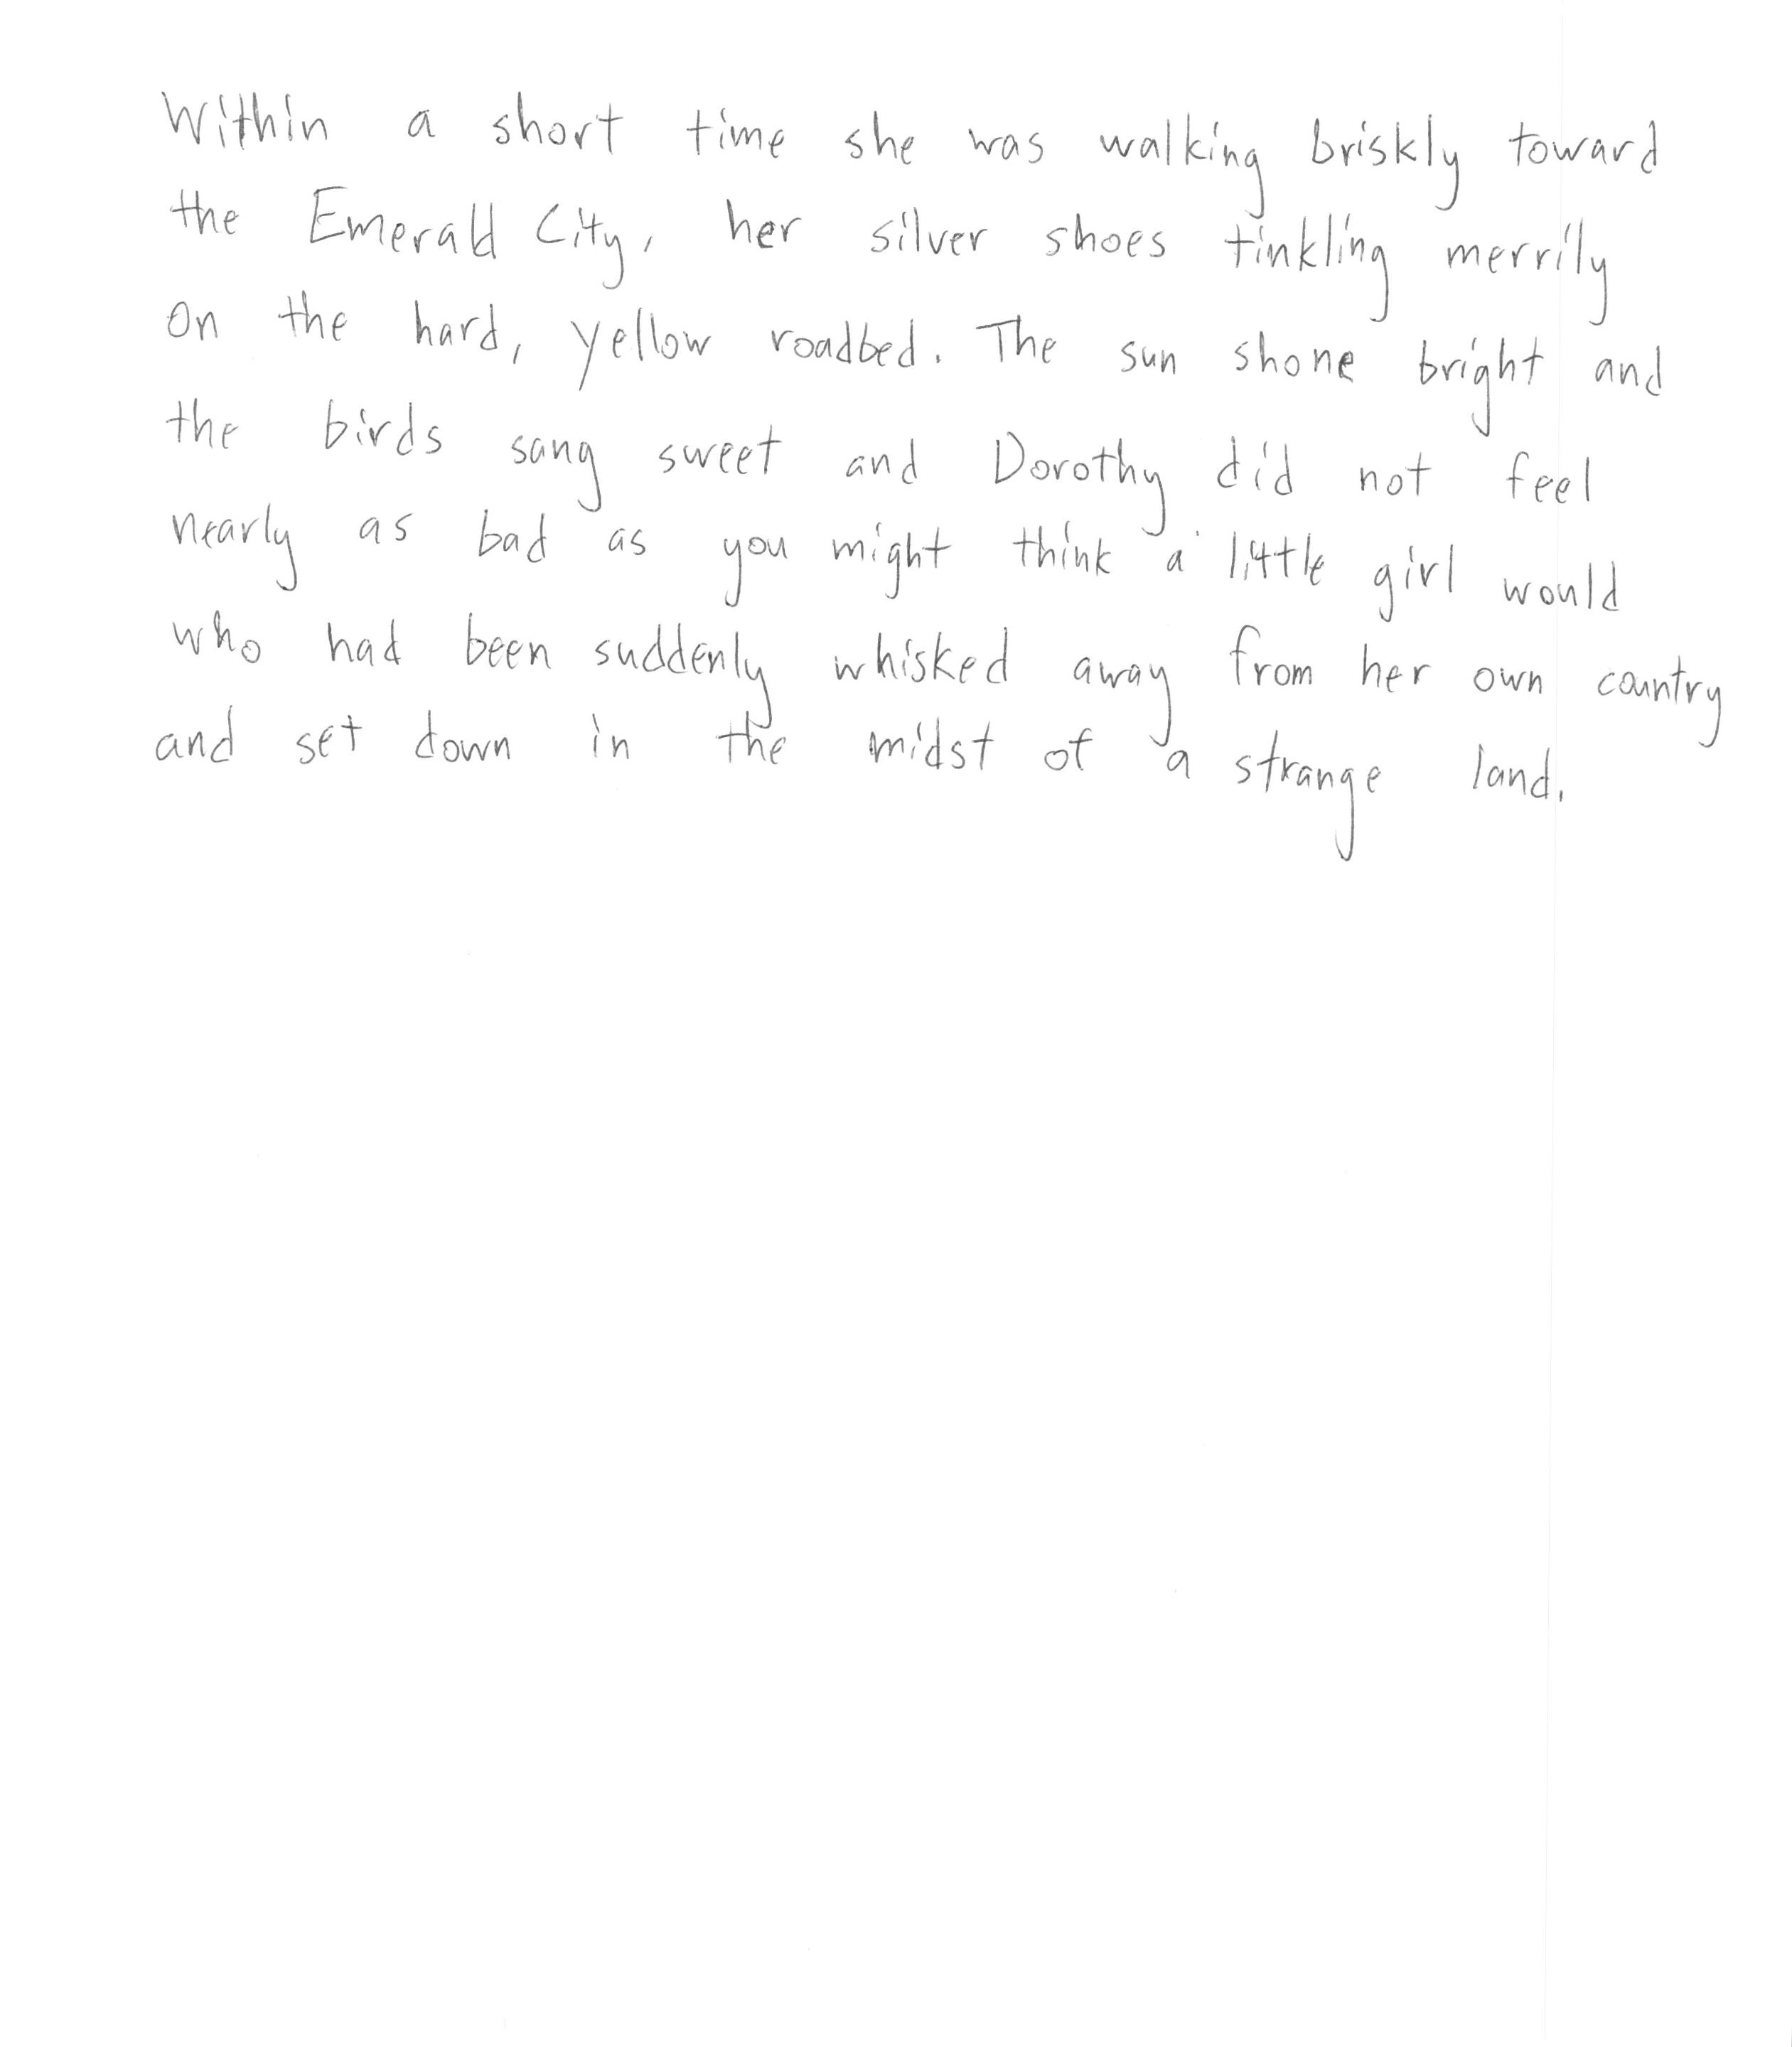 Within a short time she was walking briskly toward
the Emerald City, her silver shoes tinkling merrily
on the hard, yellow roadbed. The sun shone bright and
the birds sang sweet and Dorothy did not feel
nearly as bad as you might think a little girl would
who had been suddenly whisked away from her own country
and set down in the midst of a strange land.